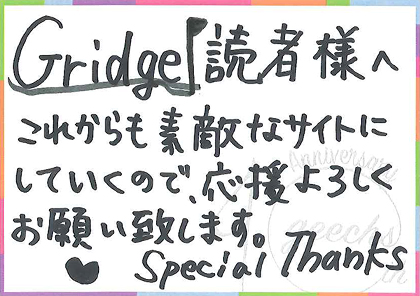 Gridge読者様へ
これからも素敵なサイトに
していくので、応援よろしく
お願い致します。
Special Thanks
Anniversary
geechs